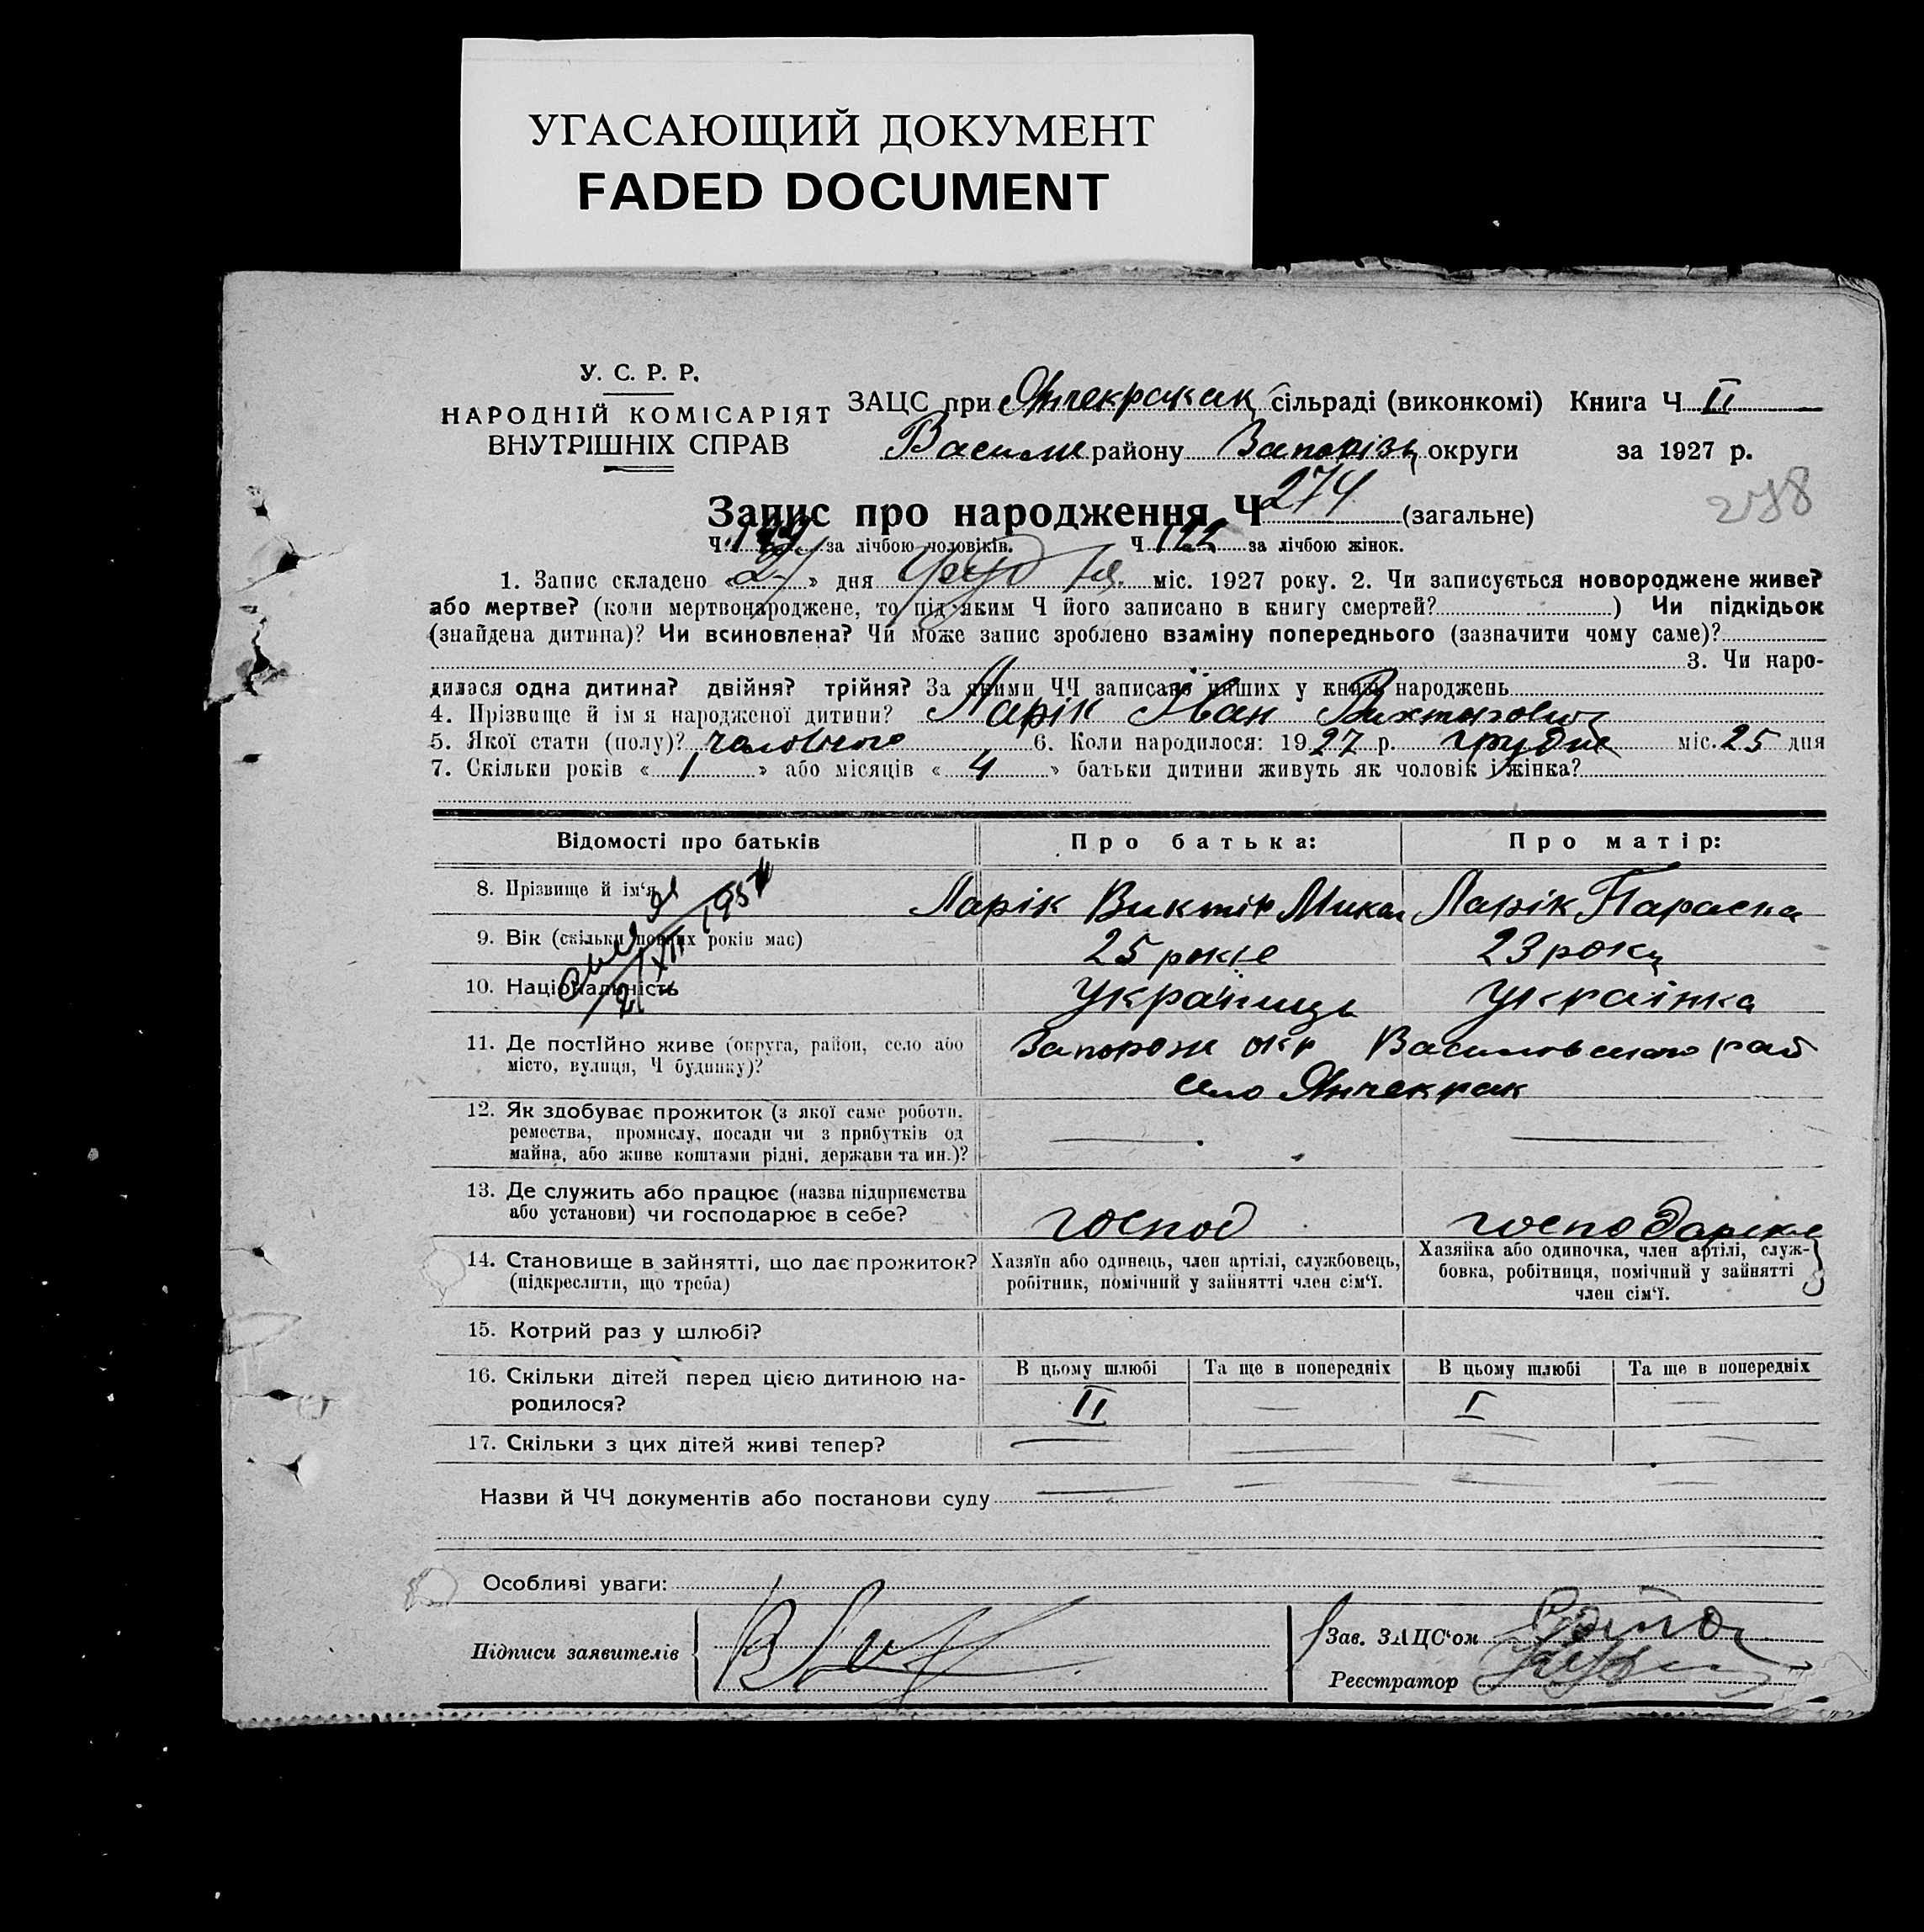 УГАСАЮЩИЙ ДОКУМЕНТ
FADED DOCUMENT
У. С. Р. Р.
НАРОДНІЙ КОМІСАРІЯТ
ВНУТРІШНІХ СПРАВ
ЗАЦС при Янчекракск сільраді (виконкомі) Книга Ч II
Васили району Запоріз округи за 1927 р.
Запис про народження Ч 274 (загальне)
288
Ч за лічбою чоловіків. Ч 122 за лічбою жінок.
1. Запис складено «27» дня Груд міс. 1927 року. 2. Чи записується новороджене живе?
або мертве? (коли мертвонароджене, то під яким Ч його записано в книгу смертей? ) Чи підкідьок
(знайдена дитина)? Чи всиновлена? Чи може запис зроблено взаміну попереднього (зазначити чому саме)?
3. Чи наро-
дилася одна дитина? двійня? трійня? За якими ЧЧ записано инших у книзі народжень
4. Прізвище й імя народженої дитини? Ларік Іван Вихторович
5. Якої стати (полу)? чоловічого 6. Коли народилося: 1927 р. грудне міс. 25 дня
7. Скільки років «1» або місяців «4» батьки дитини живуть як чоловік і жінка?
Відомості про батьків Про батька: Про матір:
8. Прізвище й ім'я Ларік Виктір Микол Ларік Параска
9. Вік (скільки повних років має) 25 років 23 року
21/XII 1957
10. Національність Украінець Украінка
11. Де постійно живе (округа, район, село або Запорож окр Василовського рай
місто, вулиця, Ч будинку)? село Янчекрак
12. Як здобуває прожиток (з якої саме роботи,
ремества, промислу, посади чи з прибутків од
майна, або живе коштами рідні, держави та ин.)?
13. Де служить або працює (назва підприємства
або установи) чи господарює в себе? господ господарка
14. Становище в зайнятті, що дає прожиток? Хазяїн або одинець, член артілі, службовець, Хазяйка або одиночка, член артілі, служ-
(підкреслити, що треба) робітник, помічний у зайнятті член сім'ї. бовка, робітниця, помічний у зайнятті
член сім'ї.
15. Котрий раз у шлюбі?
16. Скільки дітей перед цією дитиною на- В цьому шлюбі Та ще в попередніх В цьому шлюбі Та ще в попередніх
родилося? II — I —
17. Скільки з цих дітей живі тепер? — — — —
Назви й ЧЧ документів або постанови суду
Особливі уваги:
Підписи заявителів
Зав. ЗАЦС'ом
Реєстратор